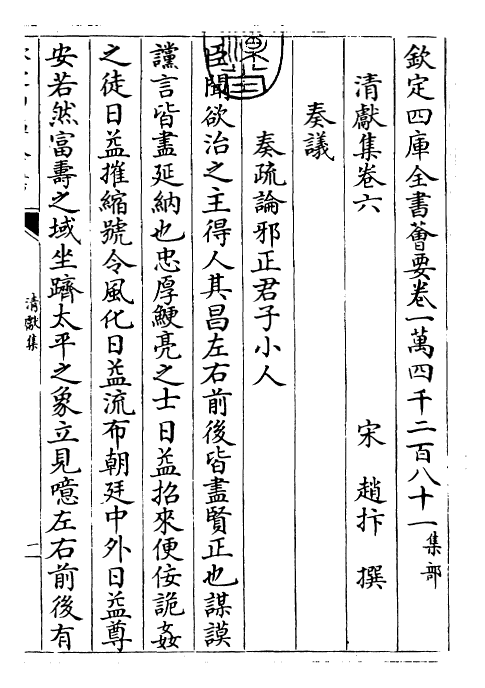 欽定四庫全書薈要卷一萬四千二百八十一集部
清獻集卷六
宋 趙抃 撰
奏議
奏疏論邪正君子小人
臣聞欲治之主得人其昌左右前後皆盡賢正也謀謨
讜言皆盡延納也忠厚鯁亮之士日益招來便佞詭姦
之徒日益摧縮號令風化日益流布朝廷中外日益尊
安若然富壽之域坐躋太平之象立見噫左右前後有
清獻集
一